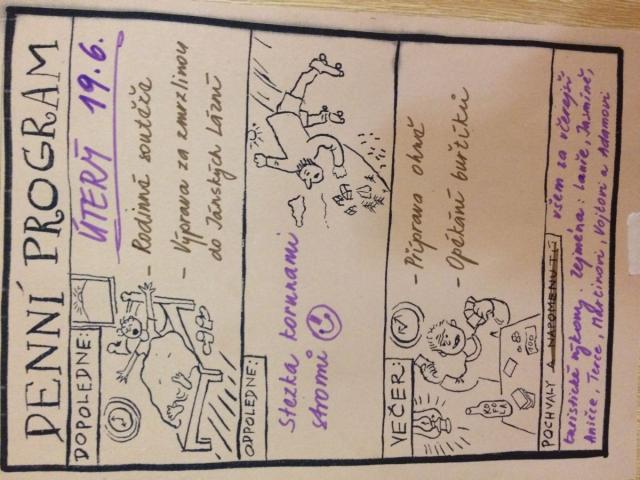 DENNÍ PROGRAM
DOPOLEDNE:
ÚTERÝ 19.6.
- Rodinná soutěž
- Výprava za zmrzlinou
do Jánských Lázní
ODPOLEDNE:
Stezka korunami
stromů
VEČER:
- Příprava ohně
- Opékání buřtíků
KOFOLA
POCHVALY A NAPOMENUTÍ:
všem za včerejší
turistické výkony. Zejména: Lanče, Jasmíně,
Aničce, Terce, Martinovi, Vojtovi a Adamovi